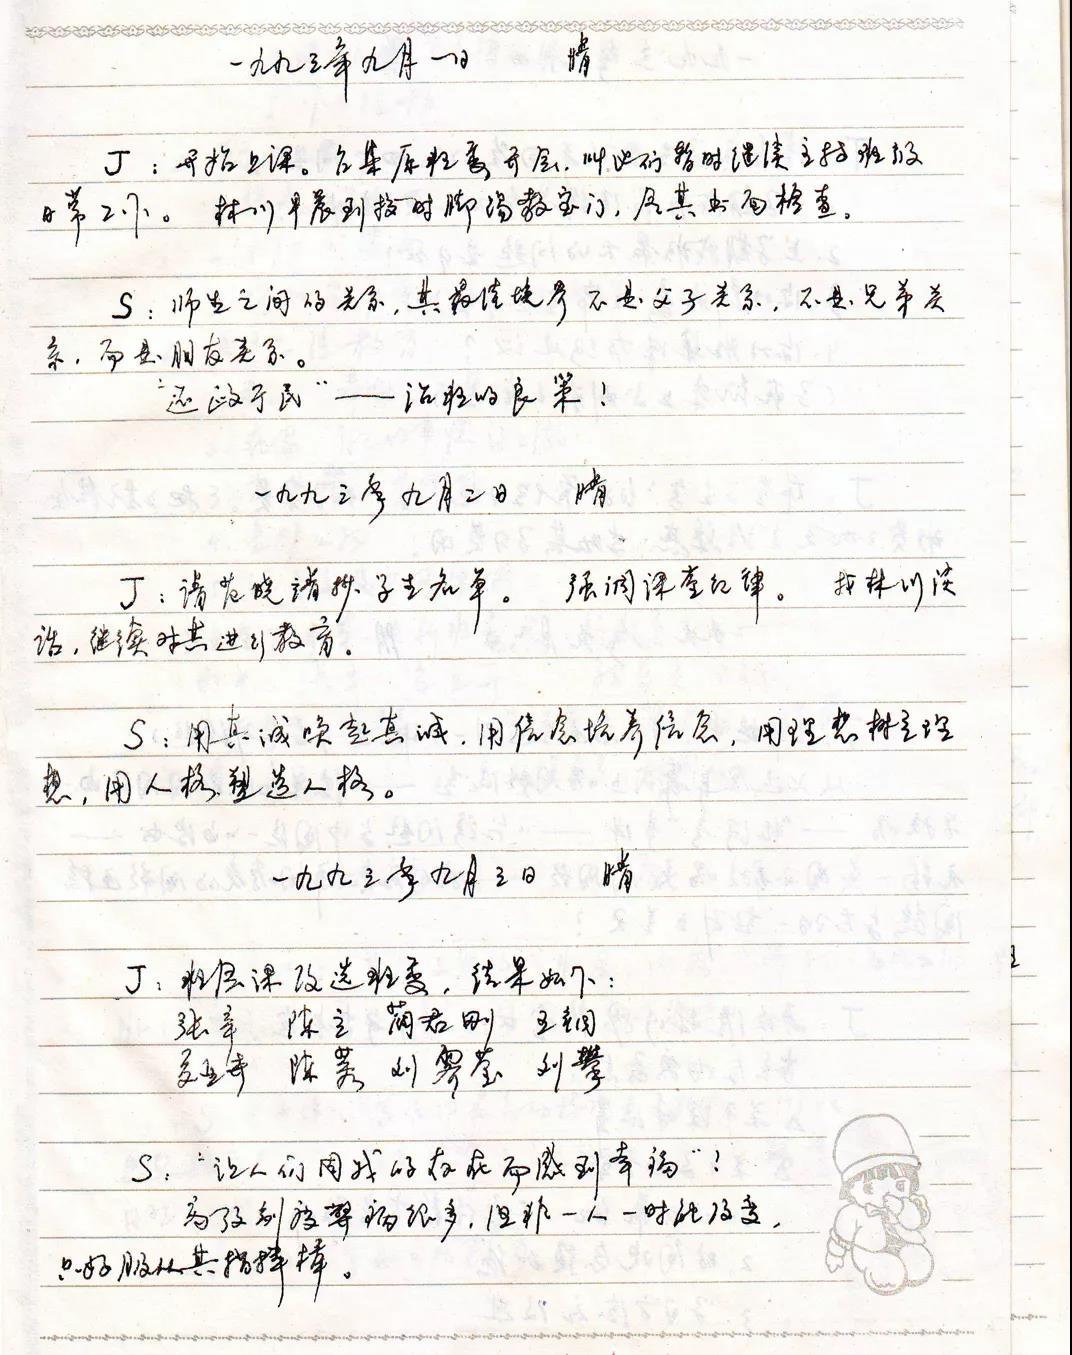 一九九三年九月一日 晴
J：开始上课。召集原班委开会，叫他们暂时继续主持班级
日常工作。 林川早晨到校时脚踢教室门，令其书面检查。
S：师生之间的关系，其最佳境界不是父子关系，不是兄弟关
系，而是朋友关系。
“还政于民”——治班的良策！
一九九三年九月二日 晴
J：请范晓靖抄学生名单。 强调课堂纪律。 找林川谈
话，继续对其进行教育。
S：用真诚唤起真诚，用信念培养信念，用理想树立理
想，用人格塑造人格。
一九九三年九月三日 晴
J：班会课改选班委，结果如下：
张 陈立 蔺君刚 王钢
陈蓉 刘 刘攀
S：“让人们因我的存在而感到幸福”！
高考制度弊病很多，但非一人一时能改变，
只好服从其指挥棒。